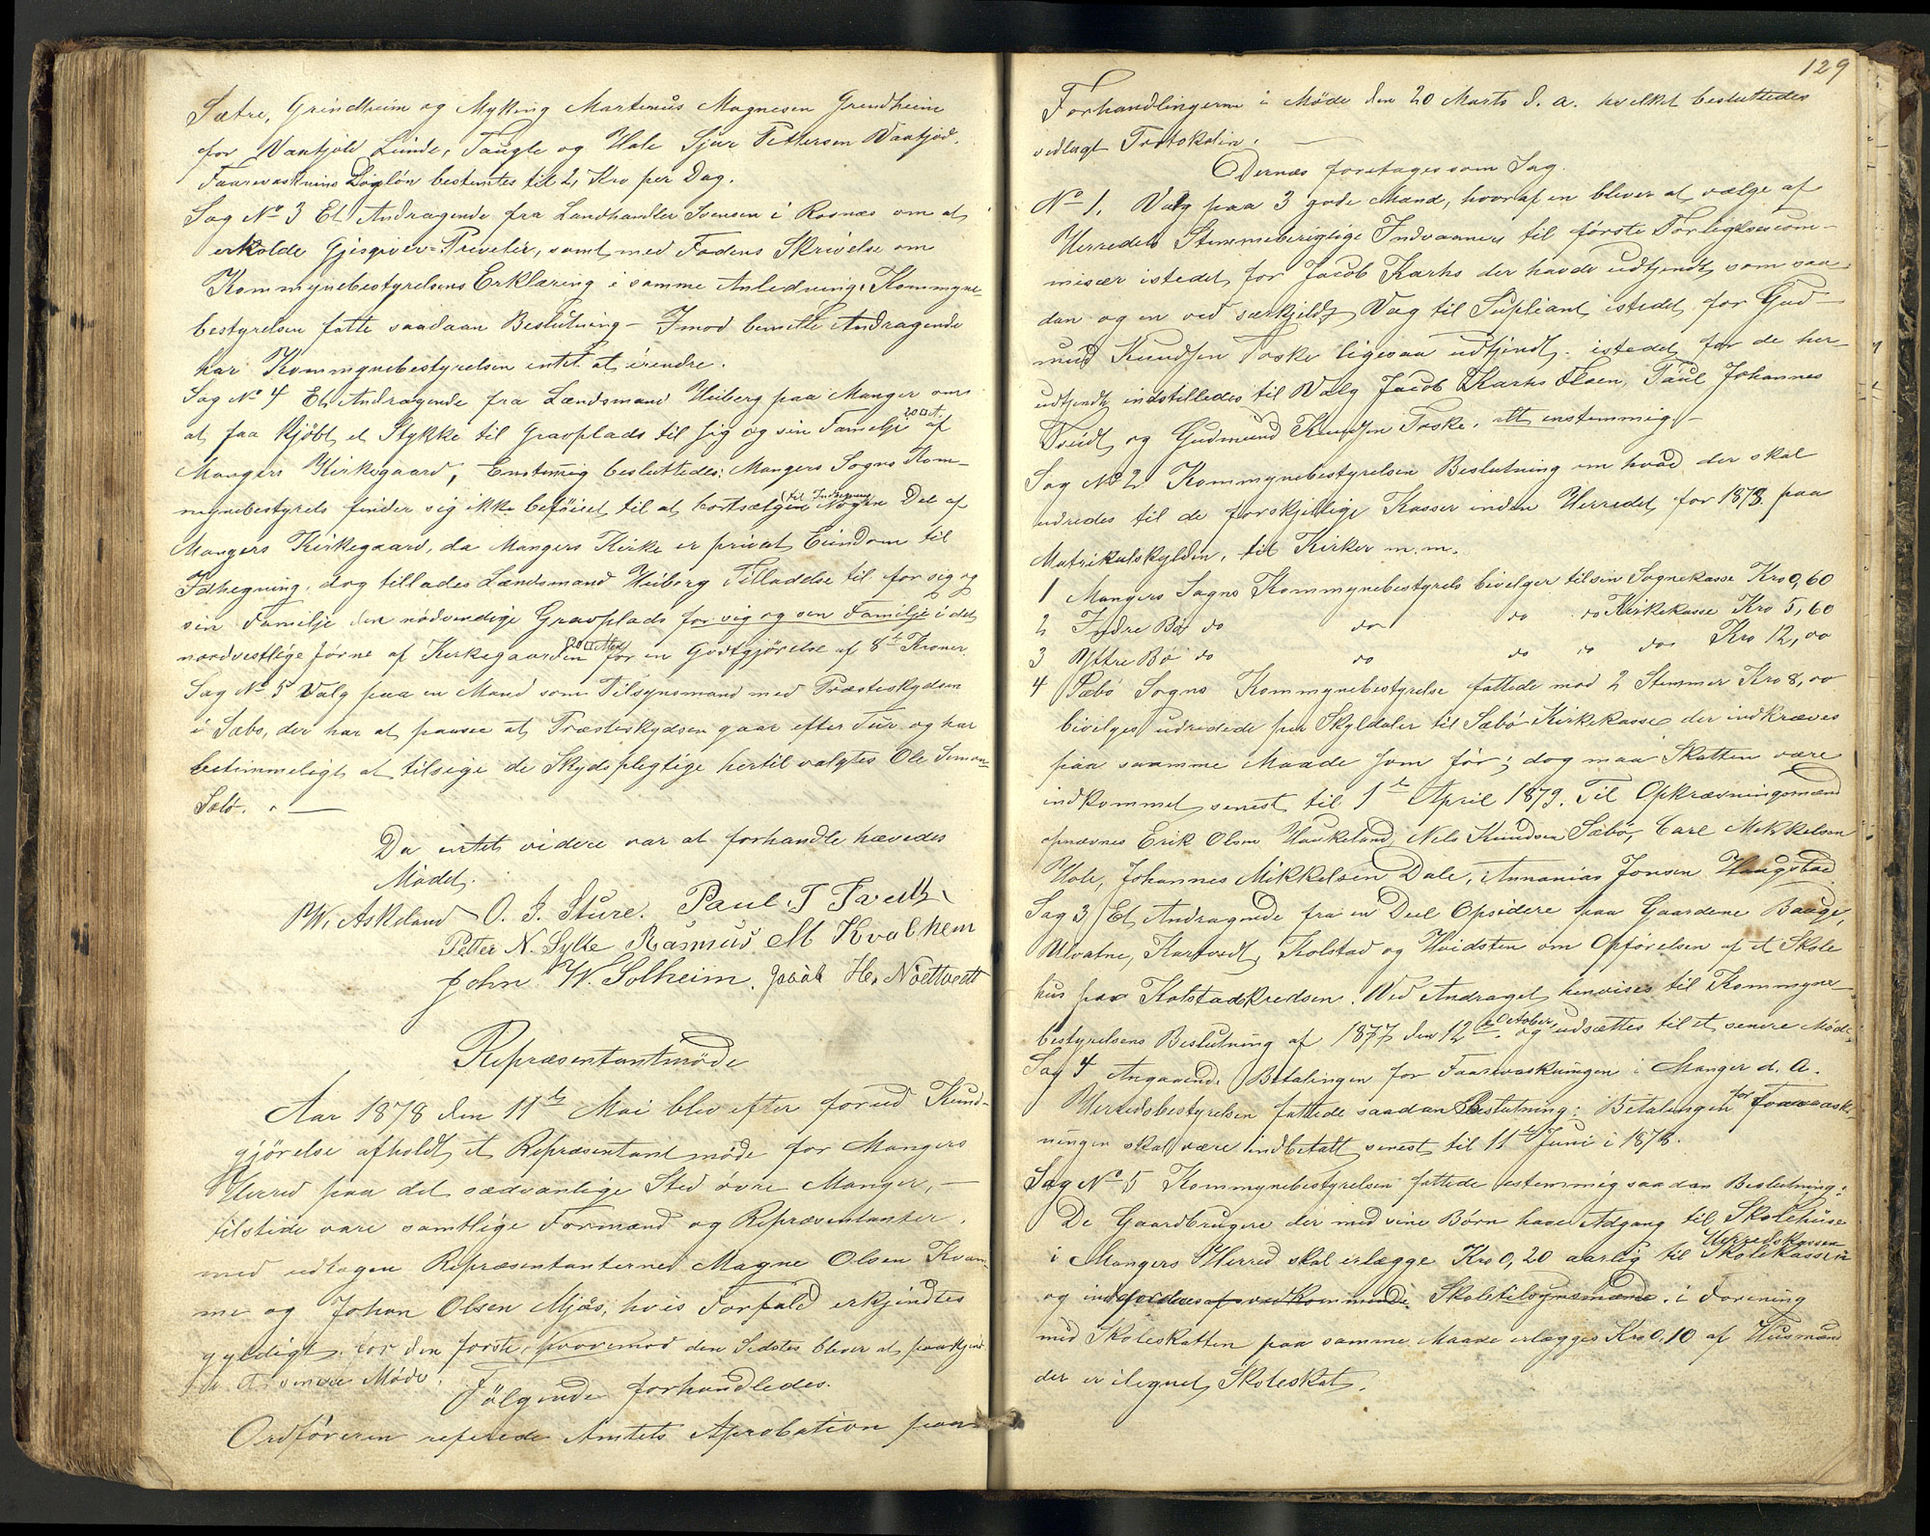 Sætre, Grindheim og Myking Martinus Magnesen Grindheim
for Vantjold Linde, Taugle og Hole Sjur Pettersen Vantjod.
Faarevasknings Dagløn bestemtes til 2 Kro per Dag.
Sag No 3 Et Andragende fra Landhandler Svensen i Rosnæs om at
erholde Gjesgiver-Priveler, samt med Fodens Skrivelse om
Kommynebestyrelsens Erklæring i samme Anledning. Kommyne-
bestyrelsen fatte saadaan Beslutning – Imod bemelte Andragende
har Kommynebestyrelsen intet at erendre.
Sag No 4 Et Andragende fra Lændsmand Heiberg paa Manger om
at faa kjøbt et Stykke til Gravplads til sig og sin Familje 20 □ A. af
Mangers Kirkegaard, Enstemig besluttedes: Mangers Sogns Kom-
mynebestyrels finder sig ikke beføiet til at bortsælgen (til Indhegning Nogen Del af
Mangers Kirkegaard, da Mangers Kirke er privat Eindom til
Idhegning. dog tillades Lændsmand Heiberg Tilladelse til for sig og
sin Familje den nødvendige Gravplads for sig og sin Familje i det
nordvestlige Jørne af Kirkegaarden 20 □ Alen for en Godtgjørelse af 8te Kroner
Sag No 5 Valg paa en Mand som Tilsynsmand med Præsteskydsen
i Sæbø, der har at paasee at Præsteskydsen gaar efter Tur og har
bestimmeligt at tilsige de Skydspligtige hertil valgtes Ole Simon-
Sæbø. –
Da intet videre var at forhandle hævedes
Mødet.
W. Askeland O. J. Sture. Paul T Tvedt
Petter N. Sylte Rasmus M Kvalhem
John W. Solheim. Jacob H. Nøttvedt
Repræsentantmøde
Aar 1878 den 11te Mai blev efter forud Kund-
gjørelse afholdt et Repræsentant møde for Mangers
Herred paa det sædvanlige Sted øvre Manger, –
tilstede vare samtlige Formænd og Repræsentanter.
med udtagen Repræsentanterne Magne Olsen Kvam-
me og Johan Olsen Mjøs, hvis Forfald erkjendtes
gyldigt for den første, hvorimod den Sidstes bliver at paakjend-
Møde.
Følgende forhandledes.
Ordføreren referede Amtets Aprobation paa
129
Forhandlingerne i Møde den 20 Marts d. a. hvilket besluttedes
vedlagt Protokolin.
Dernæs foretages som Sag.
No 1. Valg paa 3 gode Mænd, hvoraf en bliver at vælge af
Herredets Stemmeberigtige Indvaanere til første Forligelsescom-
misær istedet for Jacob Karhs der havde udtjendt som saa-
dan og en ved særkjildt Valg til Supliant istedet for God-
mund Knudsen Toske ligesaa udtjendt. istedet for de her-
udtjendt indstilledes til Valg Jacob Karhs Olsen, Paul Johannes
Tvedt og Gudmund Knudsen Toske. alt enstemmig –
Sag No 2 Kommynebestyrelsen Beslutning om hvad der skal
udredes til de forskjellige Kasser inden Herredet for 1878 paa
Matrikulskylden, til Kirker m. m.
1 Mangers Sogns Kommynebestyrels bivelger til sin Sognekasse Kro 0,60
2 Indre Bø do do do do Kirkekasse Kro 5,60
3 Yttre Bø do do do do do Kro 12,00
4 Sæbø Sogns Kommynebestyrelse fattede mod 2 Stemmer Kro 8,00
bivilges udredede per Skyldaler til Sæbø Kirkekasse der indkræves
paa saamme Maade som før; dog maa Skatten være
indkommet senest til 1te April 1879. Til Opkrævningsmænd
opnævnes Erik Olsen Haukeland, Nels Knudsen Sæbø, Carl Mikkelsen
Hole, Johannes Mikkelsen Dale, Annanias Jonsen Haugstad
Sag 3 Et Andragende fra en Deel Opsidere paa Gaardene Bauge,
Ulvatne, Kartvedt, Kolstad og Hvidsten om Opførelsen af et Skole
hus paa Kolstadkredsen. Ved Andraget henvises til Kommyne-
bestyrelsens Beslutning af 1877 den 12te October, og udsættes til et senere Møde.
Sag 4 Angaaende Betalingen for Faarevaskningen i Manger d. A.
Herredsbestyrelsen fattede saadan Beslutning: Betalingen for Faarevask-
ningen skal være indbetalt senest til 11te Juni i 1878.
Sag No 5 Kommynebestyrelsen fattede estemmig saadan Beslutning:
De Gaardbrugere der med sine Børn have Adgang til Skolehuse
i Mangers Herred skal erlægge Kro 0,20 aarlig til Herredskassen Skolekassen
og indfordres af vedkommende Skoletilsynsmænd. i Forening
med Skoleskatten paa samme Maade erlægges Kro 0,10 af Husmænd
der er ilegnet Skoleskat.